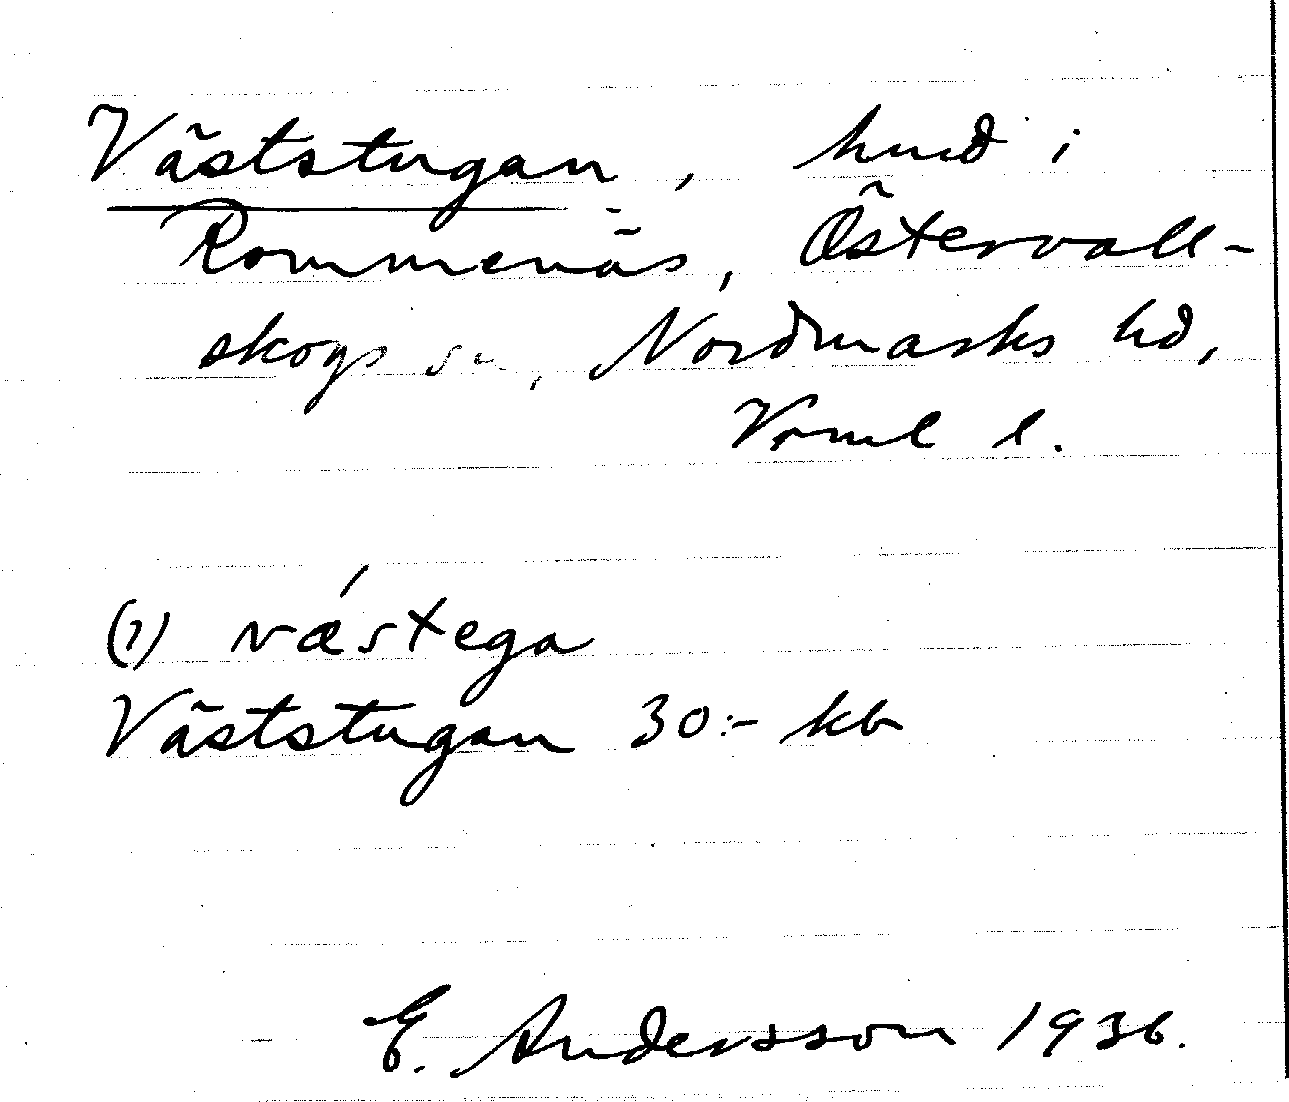 Väststugan, hmd i
Rommenäs, Östervall-
skogs sn, Nordmarks hd,
Vrml l.
(i) vǽstega
Väststugan 30:- kb
E. Andersson 1936.